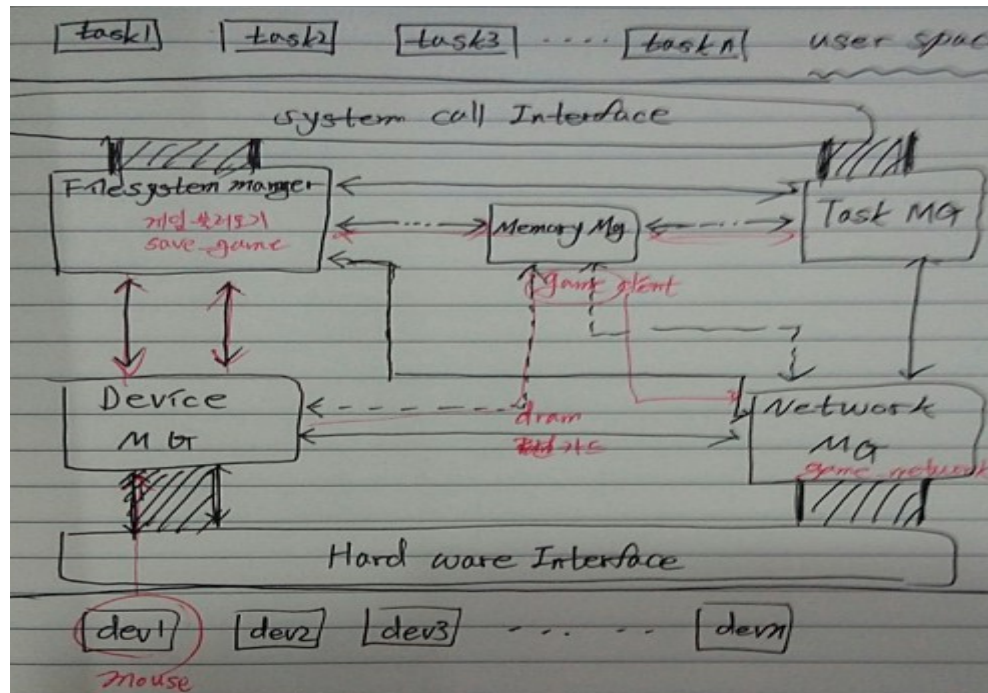 task1 task2 task3 .... task n user spac
system call Interface
Filesystem manger
게임 불러오기
save_game
Memory Mg
Task MG
game client
Device
MG
dram
Network
MG
game_network
Hard ware Interface
dev1 dev2 dev3 - ... .. devn
mouse